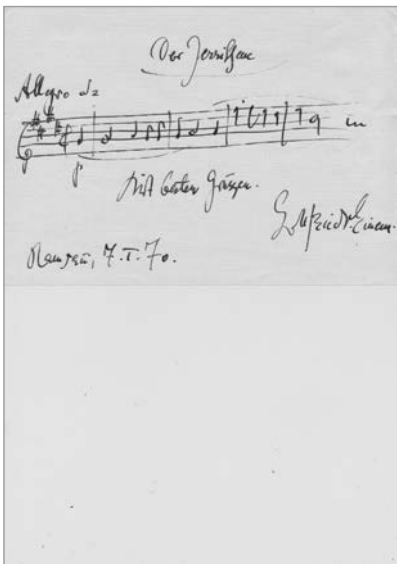 Der Zerrissene
Allegro
Mit besten Grüssen.
Gottfried v. Einem.
Ramsau, 7.I.70.